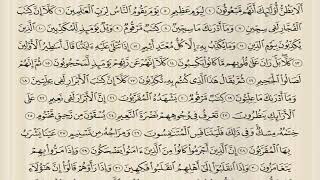 أَلَا يَظُنُّ أُو۟لَٰٓئِكَ أَنَّهُم مَّبْعُوثُونَ ٤ لِيَوْمٍ عَظِيمٍ ٥ يَوْمَ يَقُومُ ٱلنَّاسُ لِرَبِّ ٱلْعَٰلَمِينَ ٦ كَلَّآ إِنَّ كِتَٰبَ
ٱلْفُجَّارِ لَفِى سِجِّينٍ ٧ وَمَآ أَدْرَىٰكَ مَا سِجِّينٌ ٨ كِتَٰبٌ مَّرْقُومٌ ٩ وَيْلٌ يَوْمَئِذٍ لِّلْمُكَذِّبِينَ ١٠ ٱلَّذِينَ
يُكَذِّبُونَ بِيَوْمِ ٱلدِّينِ ١١ وَمَا يُكَذِّبُ بِهِۦٓ إِلَّا كُلُّ مُعْتَدٍ أَثِيمٍ ١٢ إِذَا تُتْلَىٰ عَلَيْهِ ءَايَٰتُنَا قَالَ أَسَٰطِيرُ ٱلْأَوَّلِينَ
١٣ كَلَّا بَلْ رَانَ عَلَىٰ قُلُوبِهِم مَّا كَانُوا۟ يَكْسِبُونَ ١٤ كَلَّآ إِنَّهُمْ عَن رَّبِّهِمْ يَوْمَئِذٍ لَّمَحْجُوبُونَ ١٥ ثُمَّ إِنَّهُمْ
لَصَالُوا۟ ٱلْجَحِيمِ ١٦ ثُمَّ يُقَالُ هَٰذَا ٱلَّذِى كُنتُم بِهِۦ تُكَذِّبُونَ ١٧ كَلَّآ إِنَّ كِتَٰبَ ٱلْأَبْرَارِ لَفِى عِلِّيِّينَ
١٨ وَمَآ أَدْرَىٰكَ مَا عِلِّيُّونَ ١٩ كِتَٰبٌ مَّرْقُومٌ ٢٠ يَشْهَدُهُ ٱلْمُقَرَّبُونَ ٢١ إِنَّ ٱلْأَبْرَارَ لَفِى نَعِيمٍ
٢٢ عَلَى ٱلْأَرَآئِكِ يَنظُرُونَ ٢٣ تَعْرِفُ فِى وُجُوهِهِمْ نَضْرَةَ ٱلنَّعِيمِ ٢٤ يُسْقَوْنَ مِن رَّحِيقٍ مَّخْتُومٍ ٢٥
خِتَٰمُهُۥ مِسْكٌ وَفِى ذَٰلِكَ فَلْيَتَنَافَسِ ٱلْمُتَنَٰفِسُونَ ٢٦ وَمِزَاجُهُۥ مِن تَسْنِيمٍ ٢٧ عَيْنًا يَشْرَبُ
بِهَا ٱلْمُقَرَّبُونَ ٢٨ إِنَّ ٱلَّذِينَ أَجْرَمُوا۟ كَانُوا۟ مِنَ ٱلَّذِينَ ءَامَنُوا۟ يَضْحَكُونَ ٢٩ وَإِذَا مَرُّوا۟ بِهِمْ
يَتَغَامَزُونَ ٣٠ وَإِذَا ٱنقَلَبُوٓا۟ إِلَىٰٓ أَهْلِهِمُ ٱنقَلَبُوا۟ فَكِهِينَ ٣١ وَإِذَا رَأَوْهُمْ قَالُوٓا۟ إِنَّ هَٰٓؤُلَآءِ